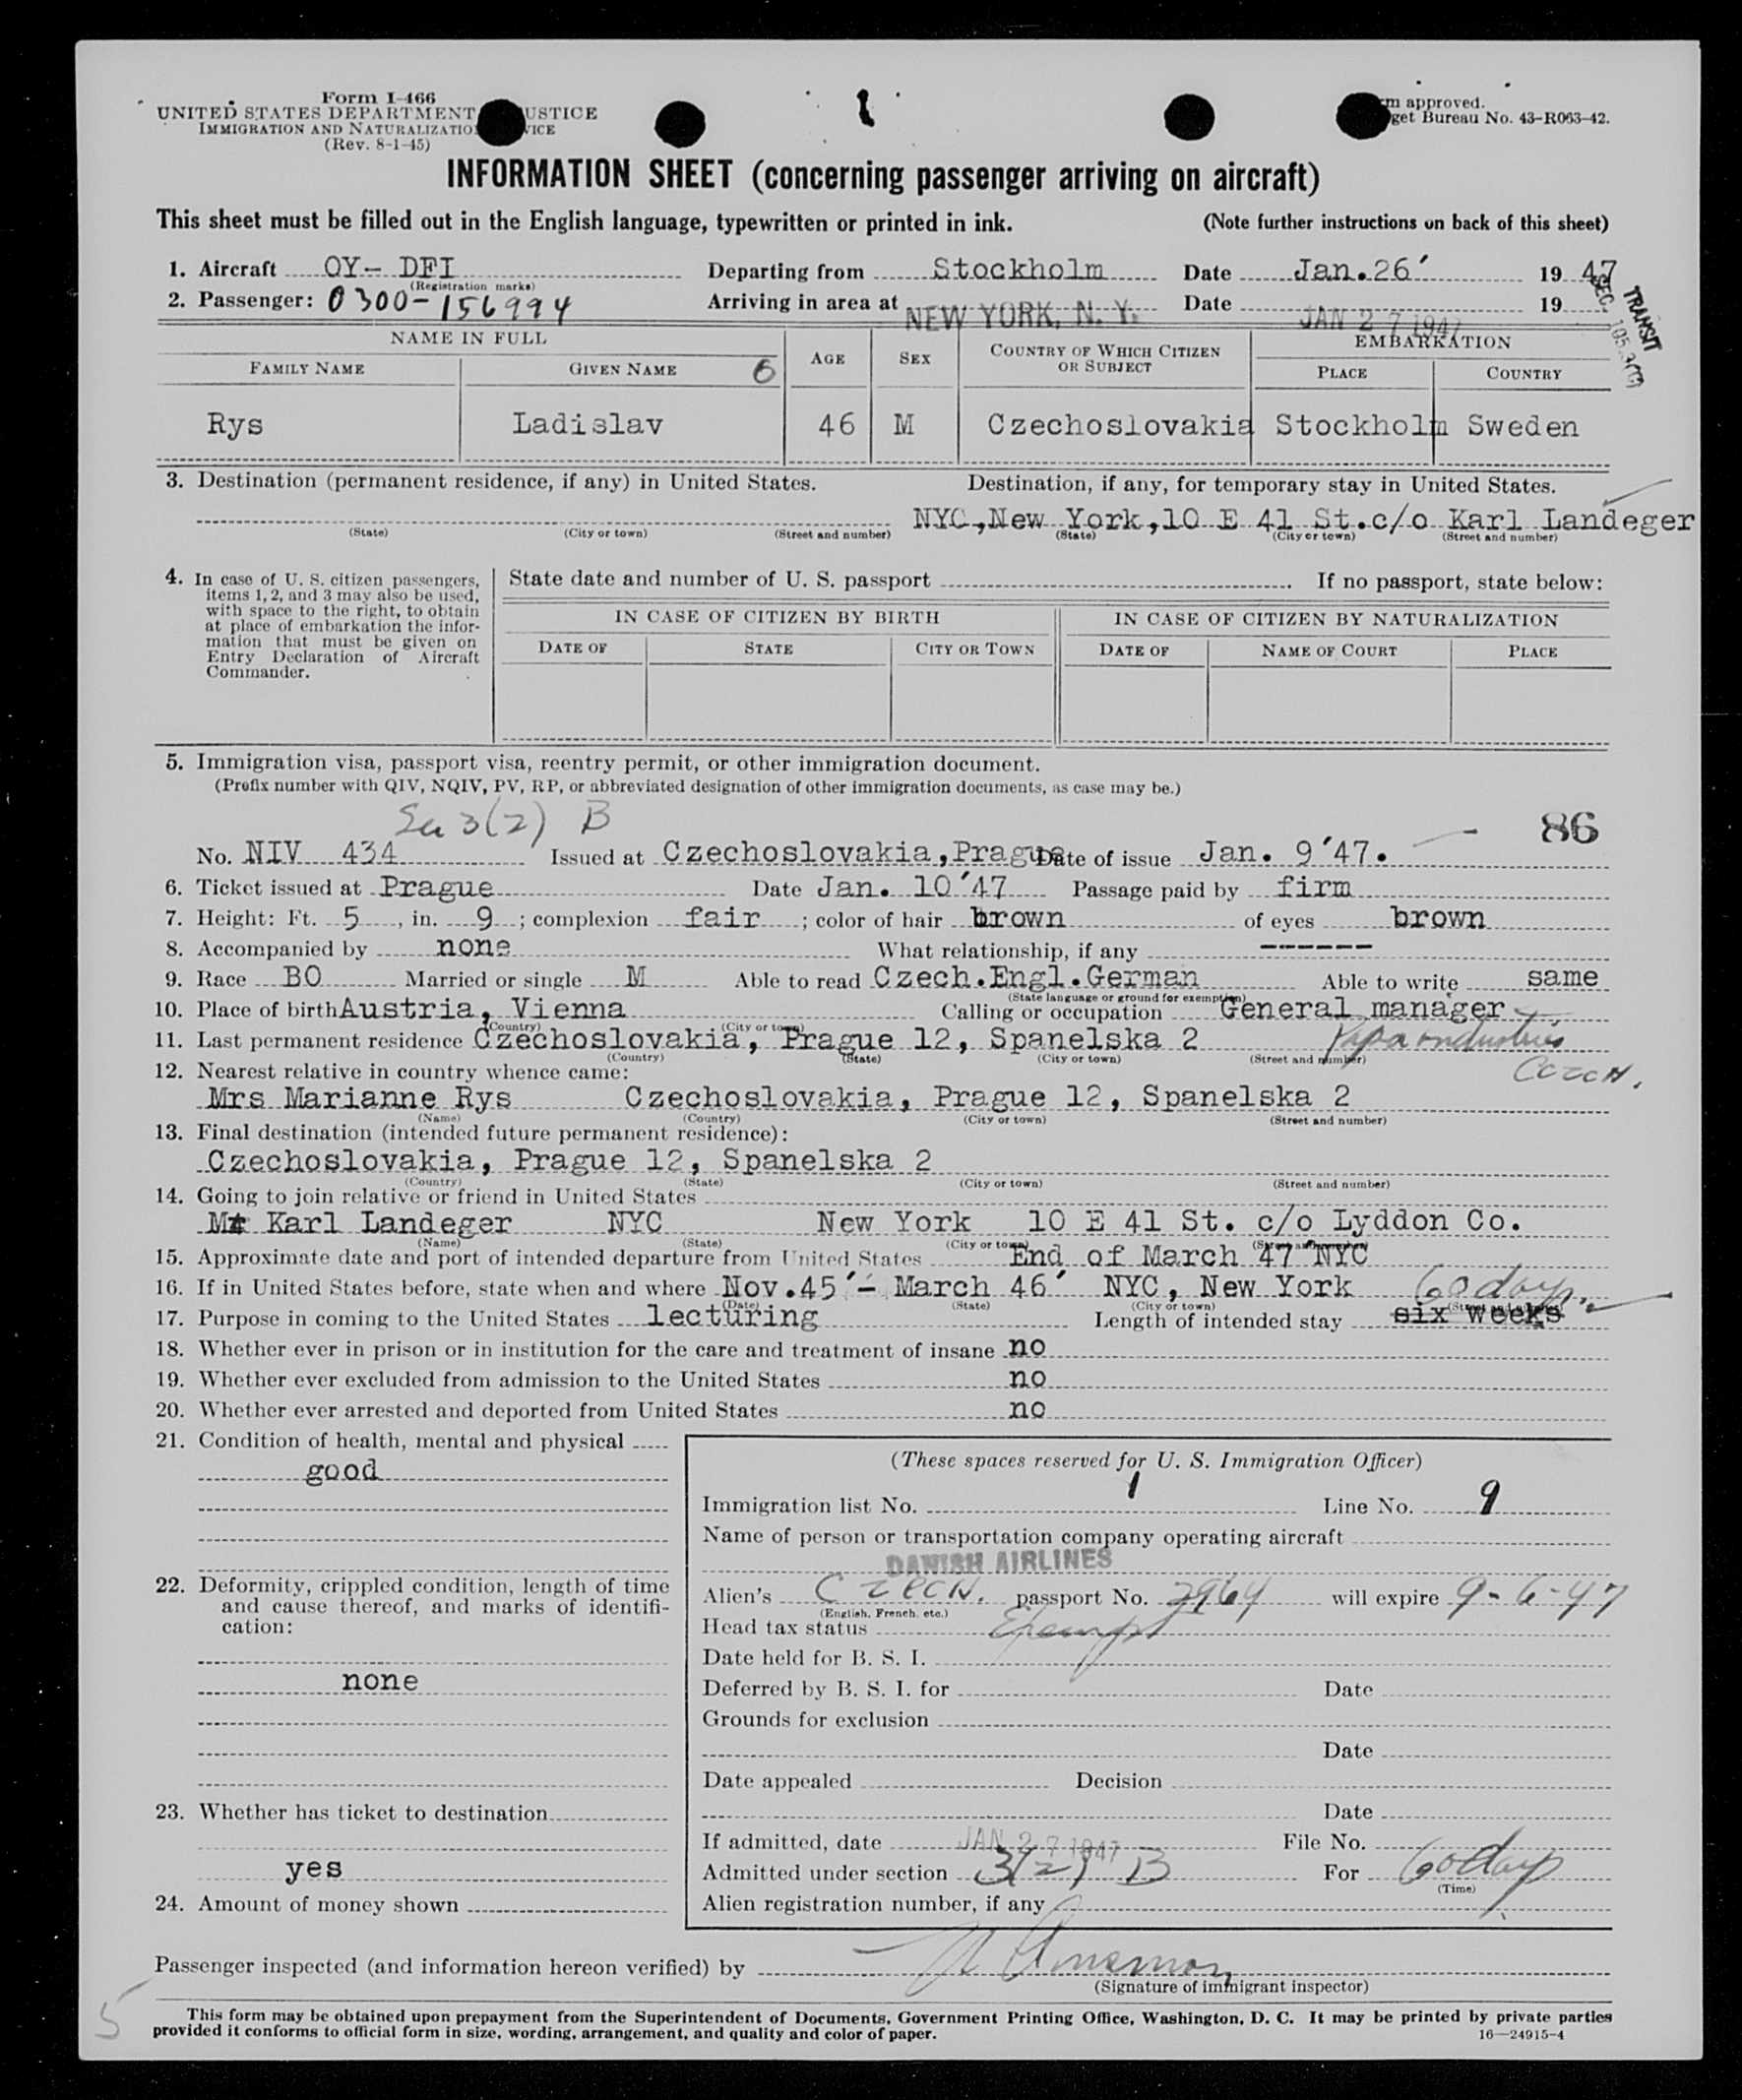 Form I-466
UNITED STATES DEPARTMENT USTICE
IMMIGRATION AND NATURALIZATIO VICE
(Rev. 8-1-45)
m approved.
get Bureau No. 43-R063-42.
INFORMATION SHEET (concerning passenger arriving on aircraft)
This sheet must be filled out in the English language, typewritten or printed in ink. (Note further instructions on back of this sheet)
1. Aircraft OY- DFI Departing from Stockholm Date Jan.26' 19 47
(Registration marks)
2. Passenger: 0300-156994 Arriving in area at NEW YORK, N. Y. Date JAN 27 1947 19
TRANSIT
SEC.
NAME IN FULL AGE SEX COUNTRY OF WHICH CITIZEN OR SUBJECT EMBARKATION
FAMILY NAME GIVEN NAME 6 PLACE COUNTRY
Rys Ladislav 46 M Czechoslovakia Stockholm Sweden
3. Destination (permanent residence, if any) in United States. Destination, if any, for temporary stay in United States.
NYC,New York,10 E 41 St.c/o Karl Landeger
(State) (City or town) (Street and number) (State) (City or town) (Street and number)
4. In case of U. S. citizen passengers, items 1, 2, and 3 may also be used, with space to the right, to obtain at place of embarkation the information that must be given on Entry Declaration of Aircraft Commander.
State date and number of U. S. passport If no passport, state below:
IN CASE OF CITIZEN BY BIRTH IN CASE OF CITIZEN BY NATURALIZATION
DATE OF STATE CITY OR TOWN DATE OF NAME OF COURT PLACE
5. Immigration visa, passport visa, reentry permit, or other immigration document.
(Prefix number with QIV, NQIV, PV, RP, or abbreviated designation of other immigration documents, as case may be.)
3(2) B 86
No. NIV 434 Issued at Czechoslovakia,Prague Date of issue Jan. 9'47.
6. Ticket issued at Prague Date Jan. 10'47 Passage paid by firm
7. Height: Ft. 5, in. 9; complexion fair; color of hair brown of eyes brown
8. Accompanied by none What relationship, if any ------
9. Race BO Married or single M Able to read Czech.Engl.German Able to write same
(State language or ground for exemption)
10. Place of birth Austria, Vienna Calling or occupation General manager
(Country) (City or town)
11. Last permanent residence Czechoslovakia, Prague 12, Spanelska 2
(Country) (State) (City or town) (Street and number)
Czech.
12. Nearest relative in country whence came:
Mrs Marianne Rys Czechoslovakia, Prague 12, Spanelska 2
(Name) (Country) (City or town) (Street and number)
13. Final destination (intended future permanent residence):
Czechoslovakia, Prague 12, Spanelska 2
(Country) (State) (City or town) (Street and number)
14. Going to join relative or friend in United States
Karl Landeger NYC New York 10 E 41 St. c/o Lyddon Co.
(Name) (State) (City or town) (Street and number)
15. Approximate date and port of intended departure from United States End of March 47'NYC
16. If in United States before, state when and where Nov.45'- March 46' NYC, New York 60 days.
(Date) (State) (City or town) (Street and number)
17. Purpose in coming to the United States lecturing Length of intended stay six weeks
18. Whether ever in prison or in institution for the care and treatment of insane no
19. Whether ever excluded from admission to the United States no
20. Whether ever arrested and deported from United States no
21. Condition of health, mental and physical
good
22. Deformity, crippled condition, length of time and cause thereof, and marks of identification:
none
23. Whether has ticket to destination
yes
24. Amount of money shown
(These spaces reserved for U. S. Immigration Officer)
Immigration list No. 1 Line No. 9
Name of person or transportation company operating aircraft
DANISH AIRLINES
Alien's CZECH. passport No. 2964 will expire 9-6-47
(English, French, etc.)
Head tax status Exempt
Date held for B. S. I.
Deferred by B. S. I. for Date
Grounds for exclusion
Date
Date appealed Decision
Date
If admitted, date JAN 27 1947 File No.
Admitted under section 3(2) B For 60 days
(Time)
Alien registration number, if any
Passenger inspected (and information hereon verified) by
(Signature of immigrant inspector)
5
This form may be obtained upon prepayment from the Superintendent of Documents, Government Printing Office, Washington, D. C. It may be printed by private parties
provided it conforms to official form in size, wording, arrangement, and quality and color of paper. 16—24915-4